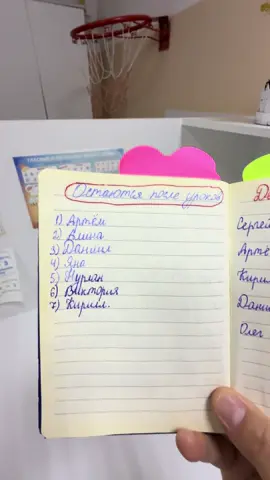 Остаются после уроков
1) Артём
2) Алина
3) Даниил
4) Яна
5) Нурлан
6) Виктория
7) Кирилл.
Сергей
Артё
Кирил
Дании
Олег